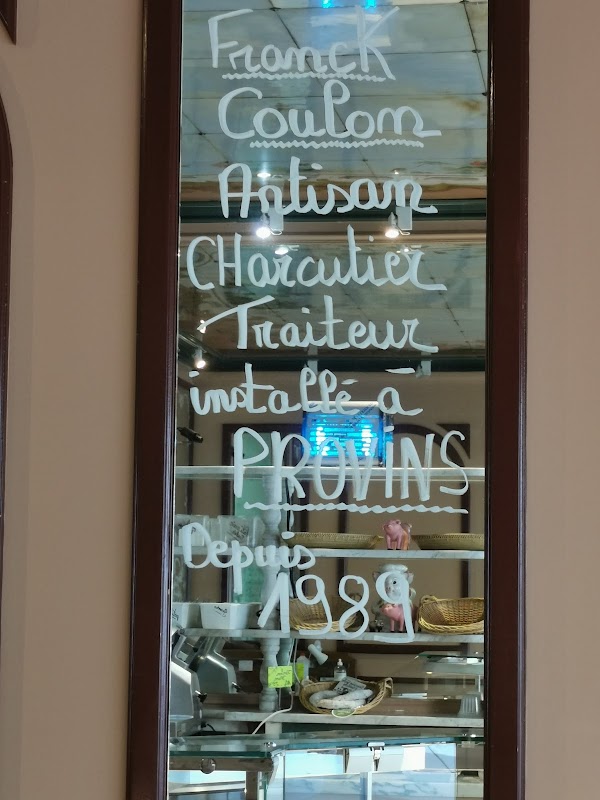 Franck
Coulon
Artisan
CHarcutier
Traiteur
installé à
PROVINS
Depuis
1989